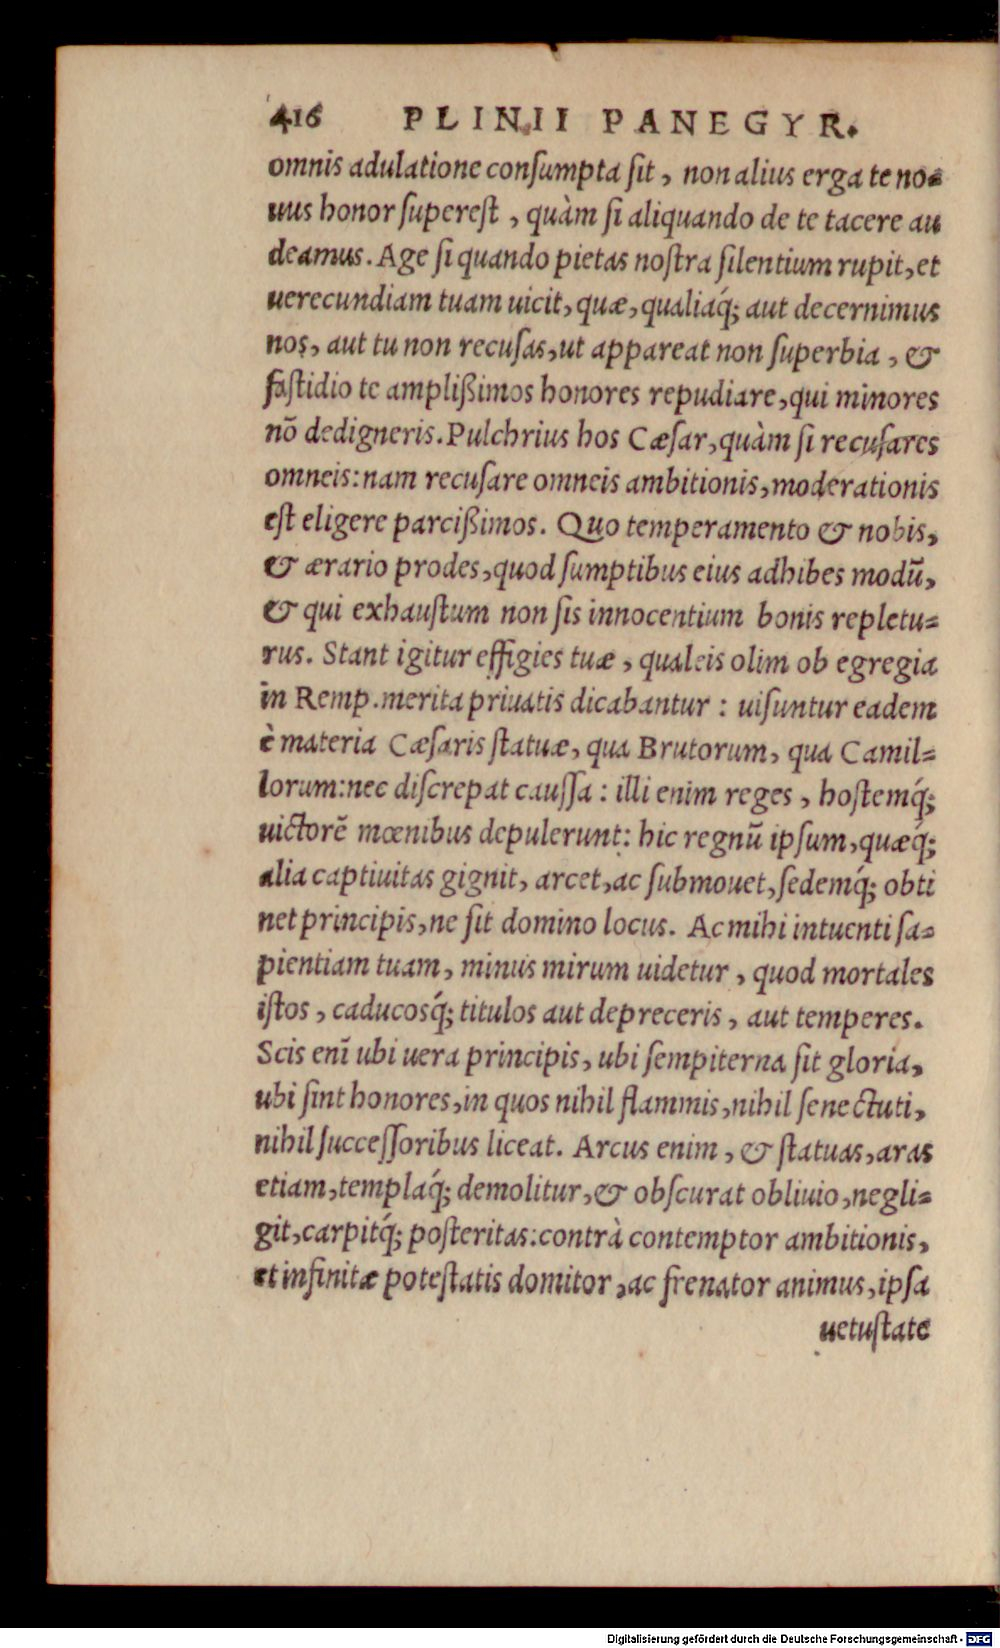 416 PLINII PANEGYR.
omnis adulatione conſumpta ſit, non alius erga te no=
uus honor ſupereſt, quàm ſi aliquando de te tacere au
deamus. Age ſi quando pietas noſtra ſilentium rupit, et
uerecundiam tuam uicit, quæ, qualiaq́; aut decernimus
nos, aut tu non recuſas, ut appareat non ſuperbia, &
faſtidio te amplißimos honores repudiare, qui minores
nō dedigneris. Pulchrius hos Cæſar, quàm ſi recuſares
omneis: nam recuſare omneis ambitionis, moderationis
eſt eligere parcißimos. Quo temperamento & nobis,
& ærario prodes, quod ſumptibus eius adhibes modū,
& qui exhauſtum non ſis innocentium bonis repletu=
rus. Stant igitur effigies tuæ, qualeis olim ob egregia
in Remp. merita priuatis dicabantur: uiſuntur eadem
è materia Cæſaris ſtatuæ, qua Brutorum, qua Camil=
lorum: nec diſcrepat cauſſa: illi enim reges, hoſtemq́;
uictorē mœnibus depulerunt: hic regnū ipſum, quæq́;
alia captiuitas gignit, arcet, ac ſubmouet, ſedemq́; obti
net principis, ne ſit domino locus. Ac mihi intuenti ſa=
pientiam tuam, minus mirum uidetur, quod mortales
iſtos, caducosq́; titulos aut depreceris, aut temperes.
Scis enī ubi uera principis, ubi ſempiterna ſit gloria,
ubi ſint honores, in quos nihil flammis, nihil ſenectuti,
nihil ſucceſſoribus liceat. Arcus enim, & ſtatuas, aras
etiam, templaq́; demolitur, & obſcurat obliuio, negli=
git, carpitq́; poſteritas: contrà contemptor ambitionis,
et infinitæ poteſtatis domitor, ac frenator animus, ipſa
uetuſtate
Digitalisierung gefördert durch die Deutsche Forschungsgemeinschaft - DFG